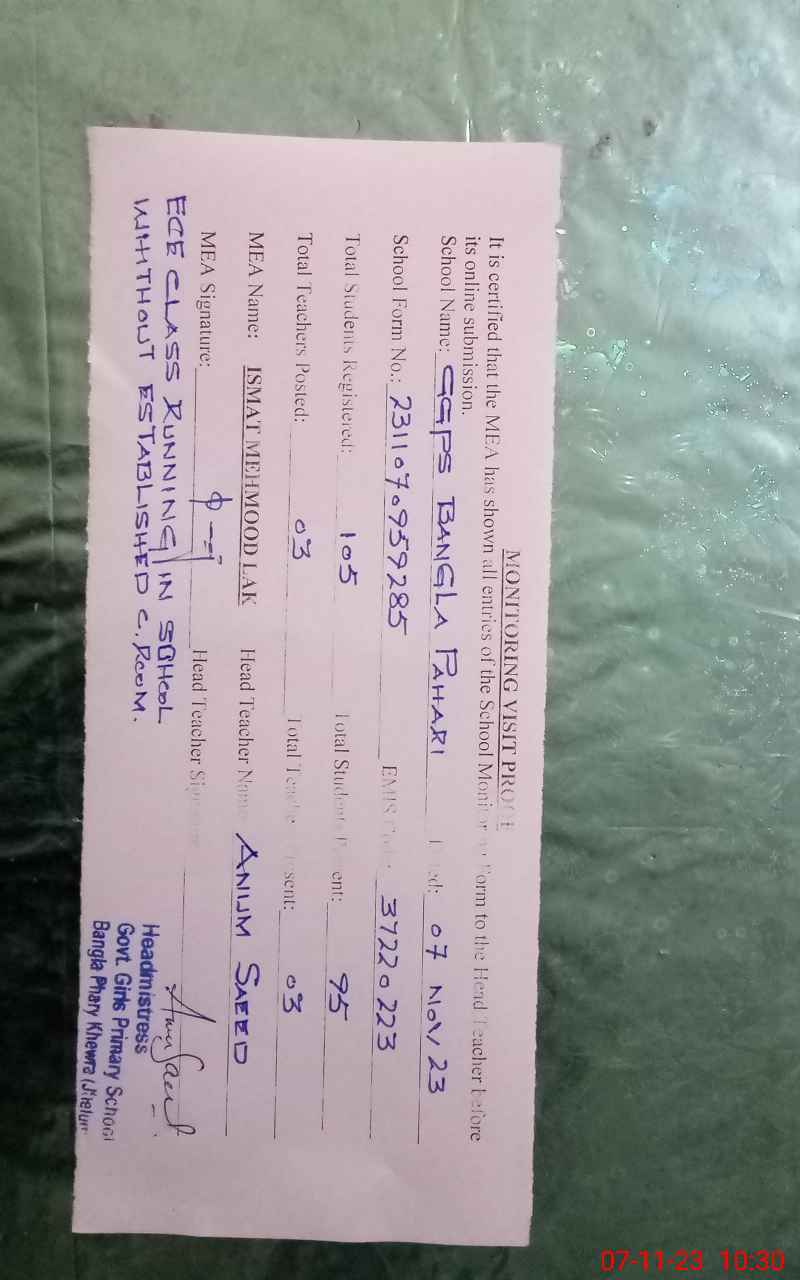 MONITORING VISIT PROOF
It is certified that the MEA has shown all entries of the School Monitoring Form to the Head Teacher before
its online submission.
School Name: GGPS BANGLA PAHARI Dated: 07 NOV 23
School Form No.: 2311070959285 EMIS Code: 37220223
Total Students Registered: 105 Total Students Present: 95
Total Teachers Posted: 03 Total Teachers Present: 03
MEA Name: ISMAT MEHMOOD LAK Head Teacher Name ANUM SAEED
MEA Signature: Head Teacher Signature
ECE CLASS RUNNING IN SCHOOL
WIHITHOUT ESTABLISHED C. ROOM.
Headmistress
Govt. Girls Primary School
Bangla Phary Khewra (Jhelum
07-11-23 10:30